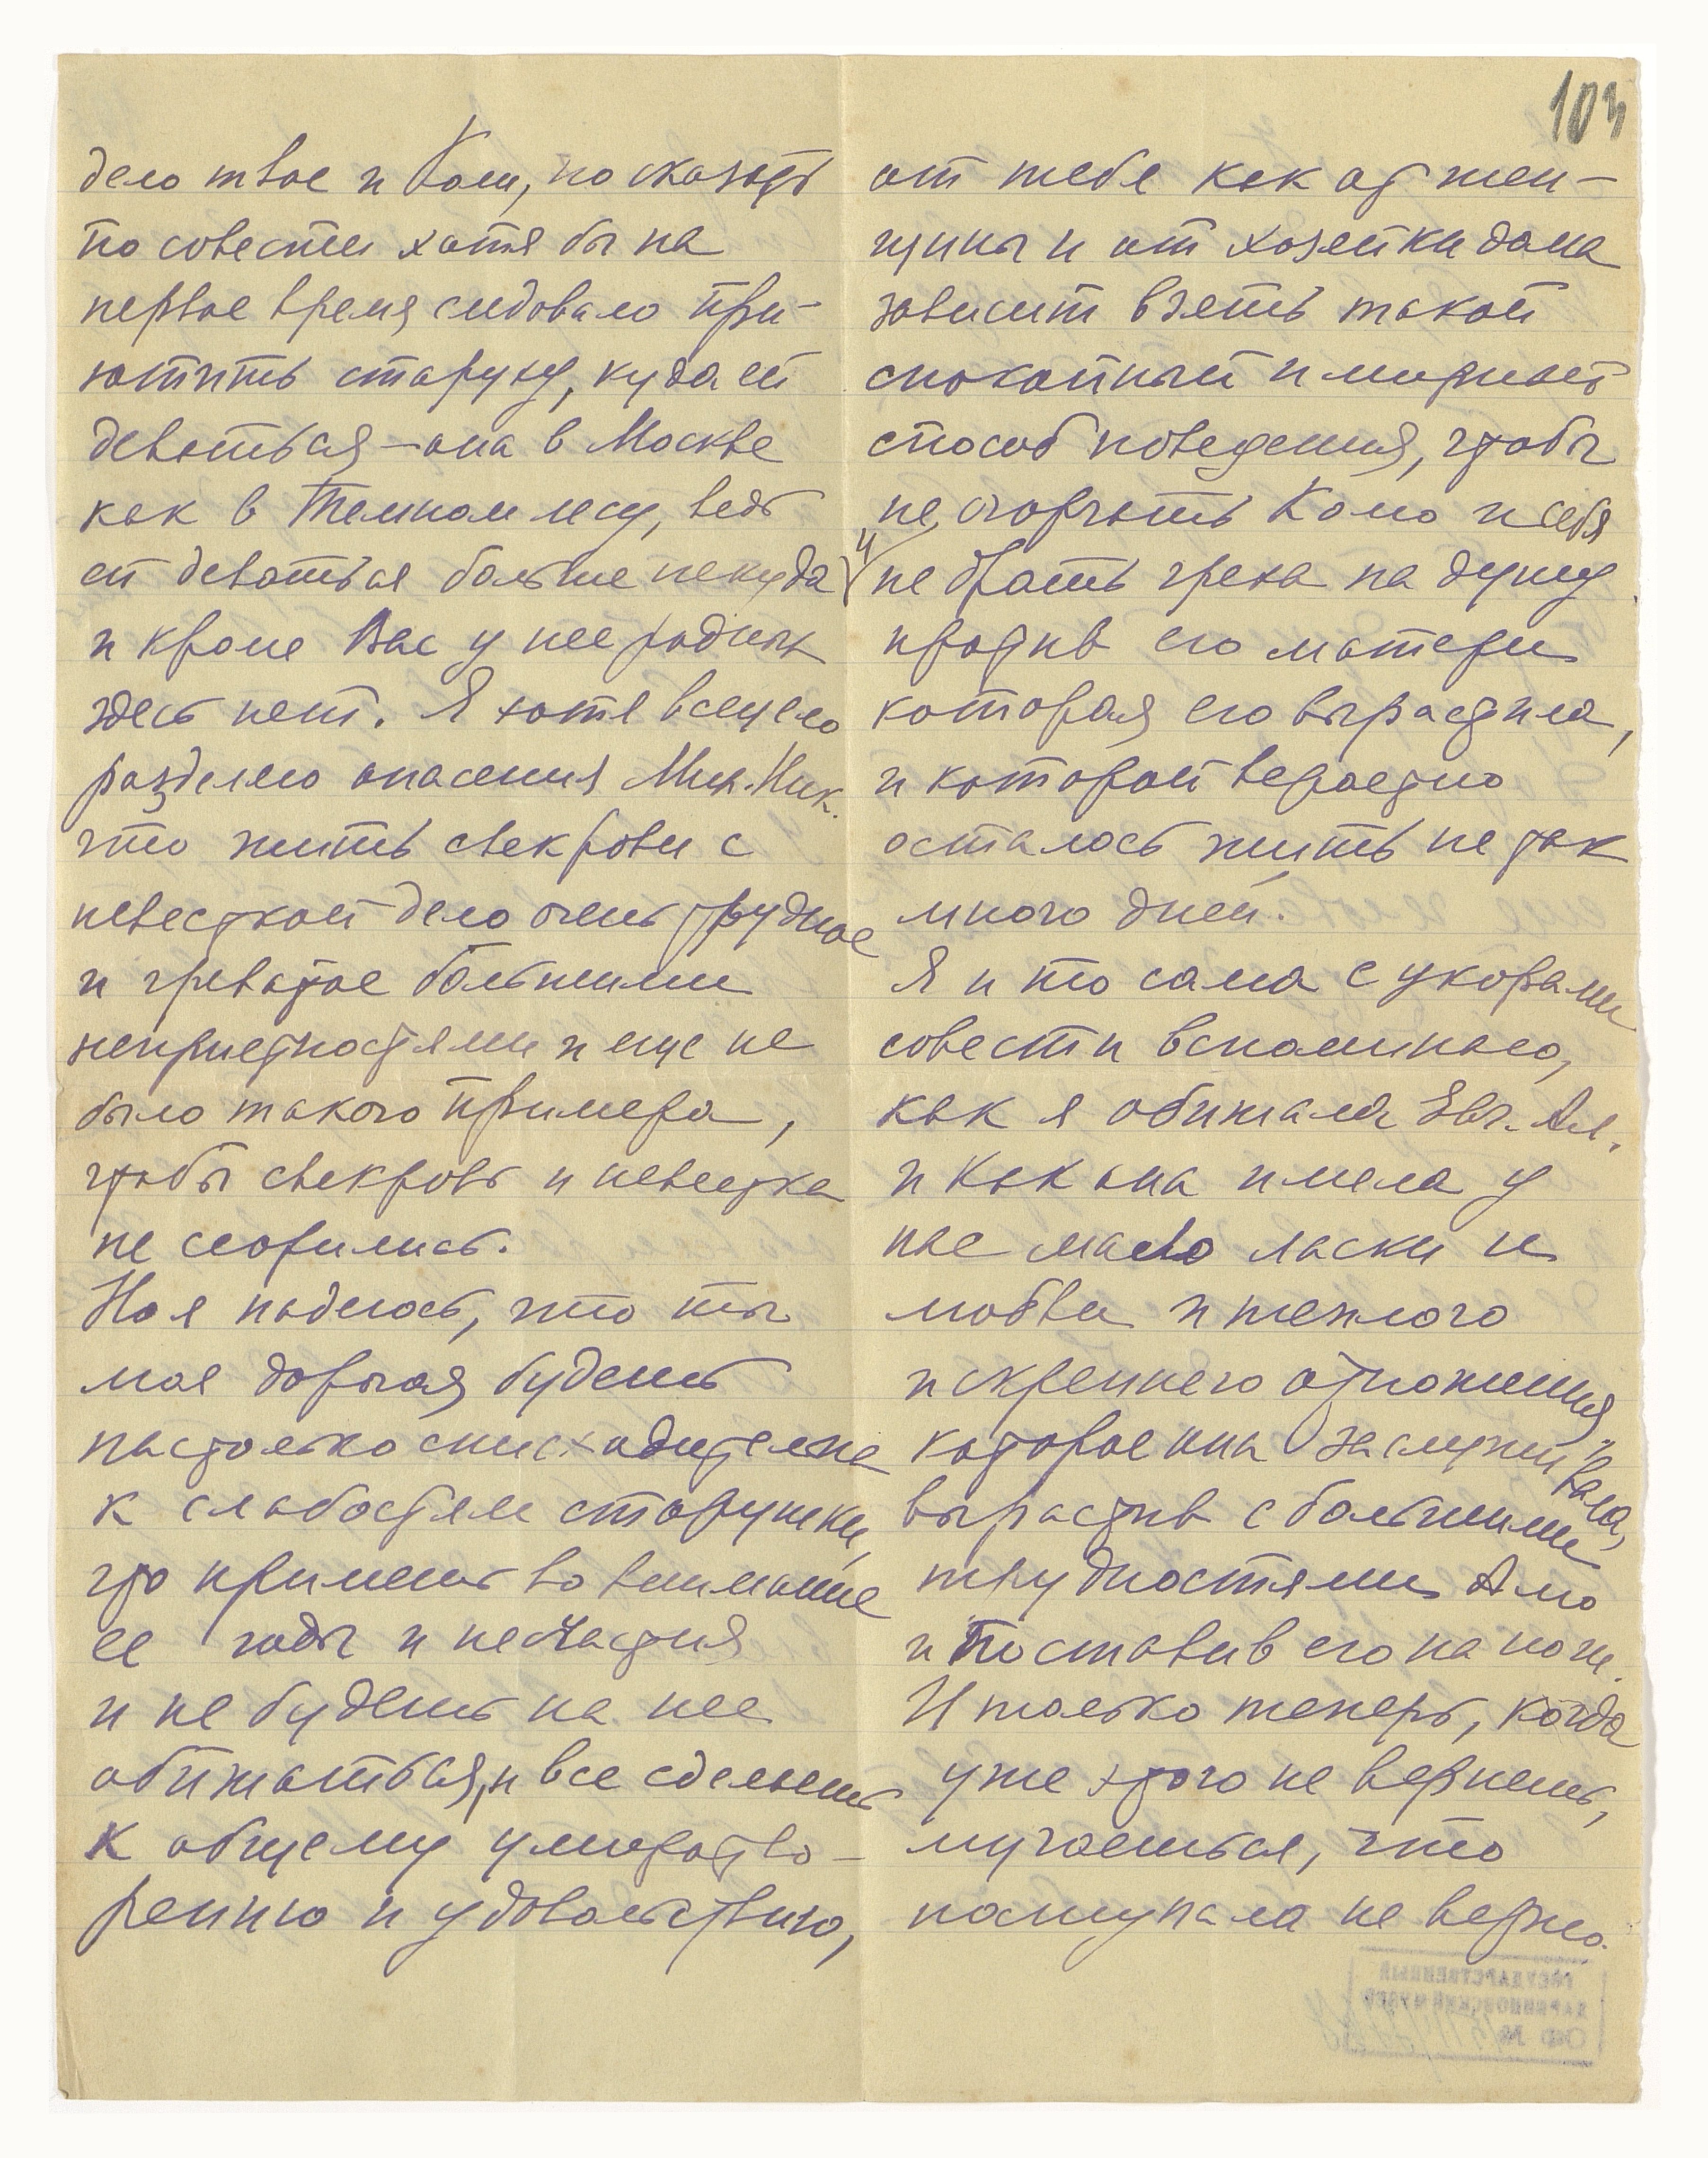 103
дело твое и Коли, но сказать
по совести хотя бы на
первое время следовало при-
ютить старуху, куда ей
деваться – она в Москве
как в темном лесу, ведь
ей деваться больше некуда
и кроме Вас у нее родных
здесь нет. Я хотя всецело
разделяю опасения Мих. Ник.
что жить свекрови с
невесткой дело очень трудное
и чреватое большими
неприятностями и еще не
было такого примера,
чтобы свекровь и невестка
не ссорились.
Но я надеюсь, что ты
моя дорогая будешь
настолько снисходительна
к слабостям старушки,
что примешь во внимание
ее годы и несчастия
и не будешь на нее
обижаться, и все сделаешь
к общему умиротво-
рению и удовольствию,
от тебя как от жен-
щины и от хозяйки дома
зависит взять такой
спокойный и мирный
способ поведения, чтобы
не огорчать Колю и себя
и не брать греха на душу
против его матери
которая его вырастила,
и которой вероятно
осталось жить не так
много дней.
Я и то сама с укорами
совести вспоминаю,
как я обижала Евг. Ал.
и как она имела у
нас мало ласки и
любви и теплого
искреннего отношения
которое она заслуживала,
вырастив с большими
трудностями Алю
и поставив его на ноги.
И только теперь, когда
уже этого не вернешь,
мучаешься, что
поступала не верно.
ГОСУДАРСТВЕННЫЙ
ДАРВИНОВСКИЙ МУЗЕЙ
ОФ №